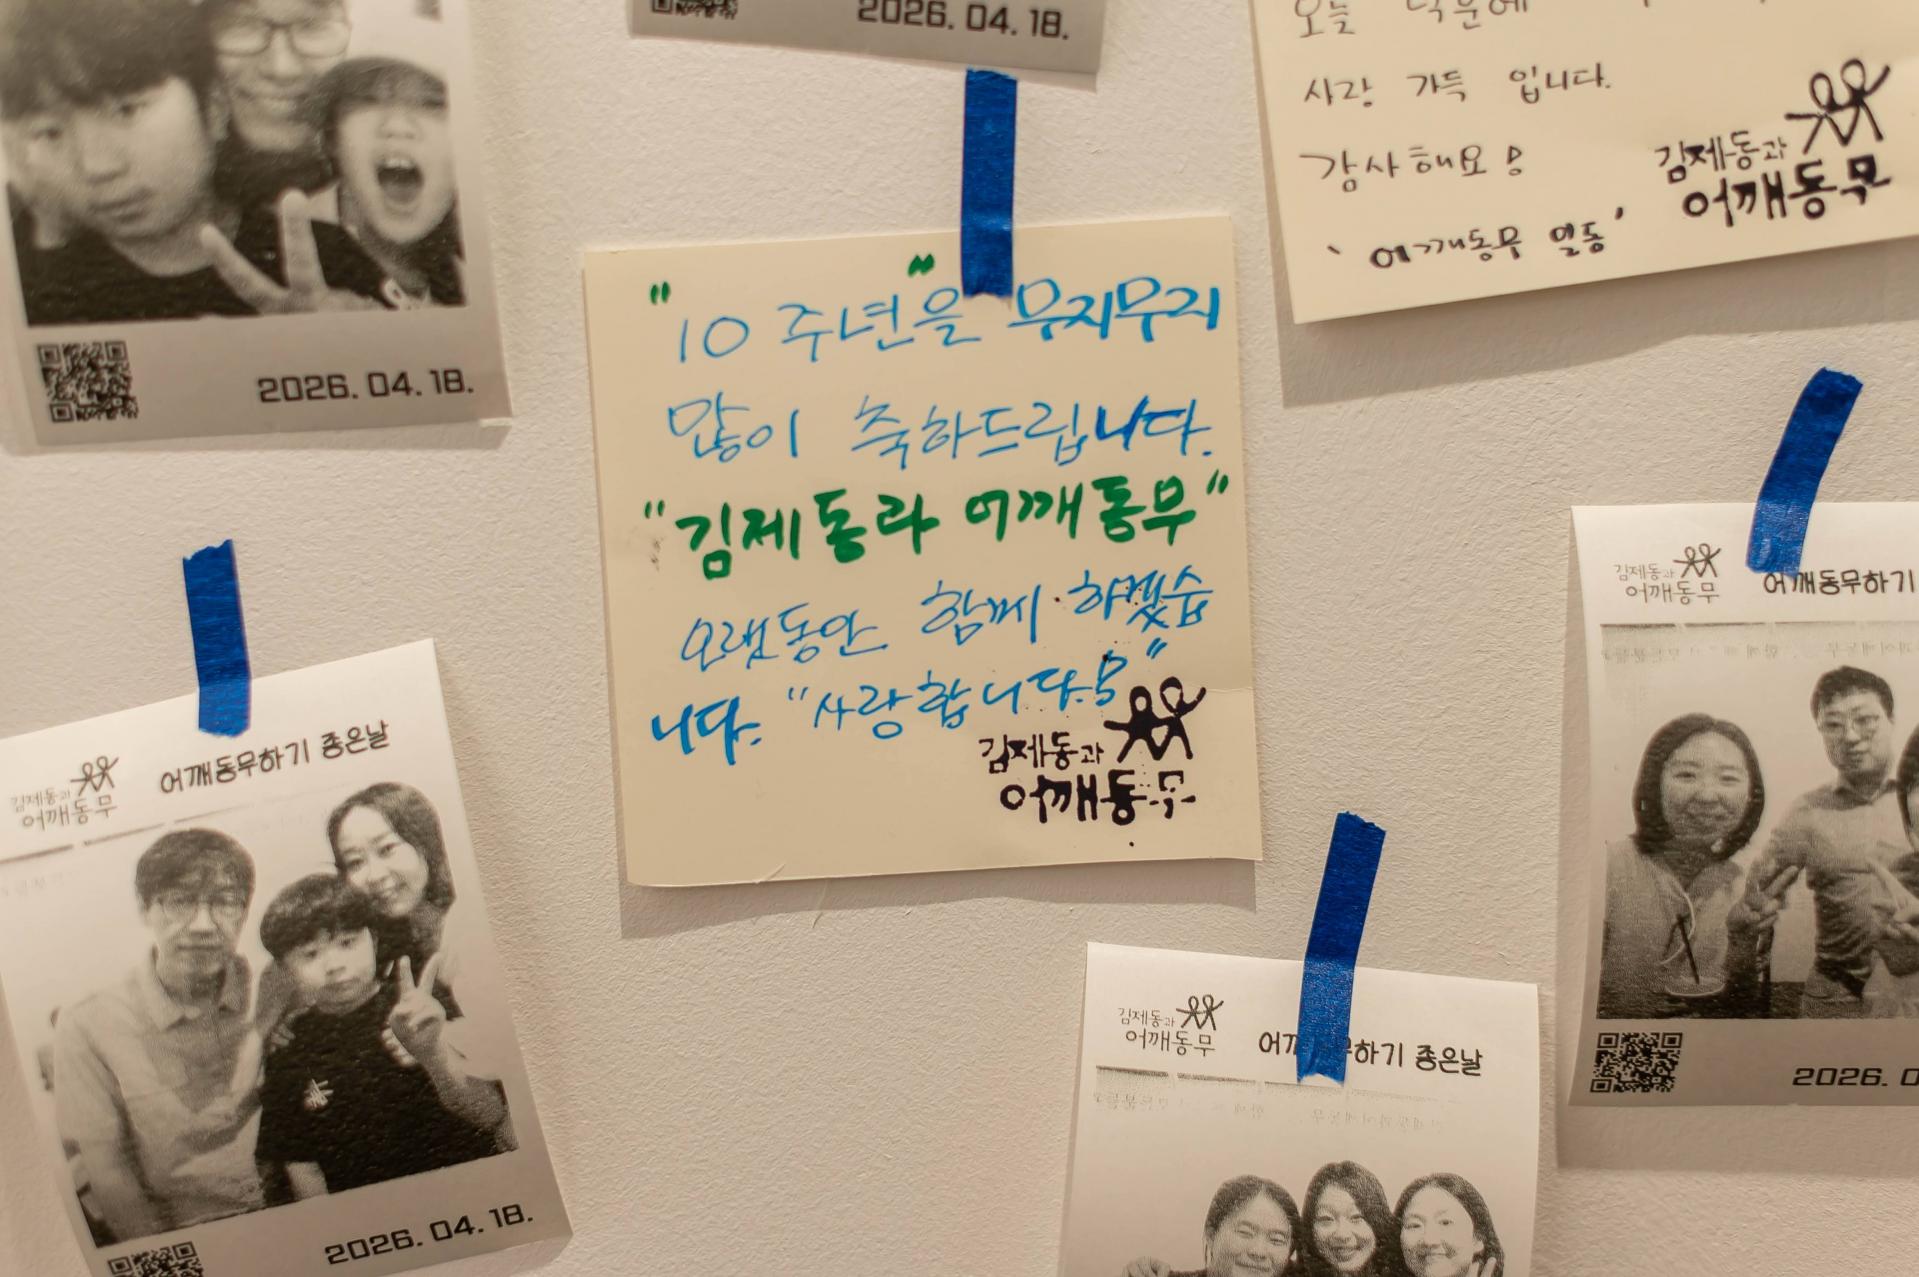 2026. 04. 18.
2026. 04. 18.
오늘
사랑 가득 입니다.
감사해요!
김제동과
어깨동무
'어깨동무 일동'
"10주년"을 무지무지
많이 축하드립니다.
"김제동과 어깨동무"
오랫동안 함께 하겠습
니다. "사랑합니다.!"
김제동과
어깨동무
김제동과
어깨동무
어깨동무하기 좋은날
2026. 04. 18.
김제동과
어깨동무
어깨동무하기
2026. 0
김제동과
어깨동무
어깨 무하기 좋은날